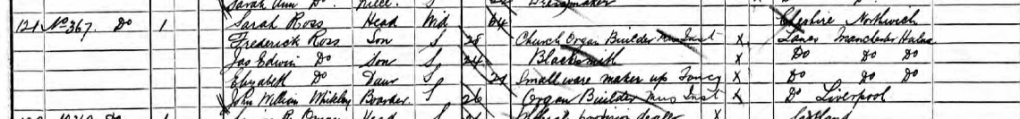 Sarah Ann Do Niece S Dressmaker
121 No 367 Do 1 Sarah Ross Head Wid 64 Cheshire Northwich
Frederick Ross Son S 28 Church Organ Builder Mus Inst X Lancs Manchester Hulme
Jas Edwin Do Son S 24 Blacksmith X Do Do Do
Elizabeth Do Daur S 21 Smallware maker up Fancy X Do Do Do
John William Boarder S 26 Organ Builder Mus Inst X Do Liverpool
Head dealer X Scotland